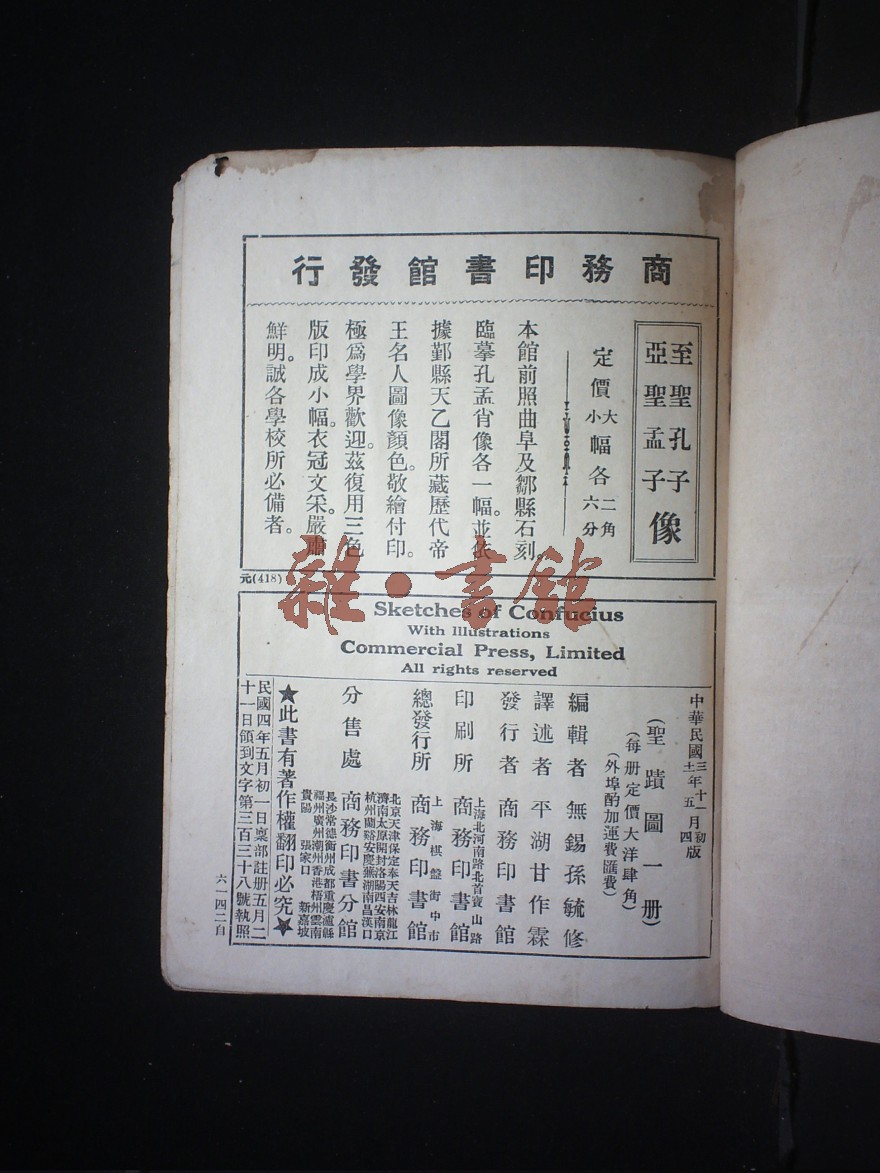 商務印書館發行
至聖孔子
亞聖孟子
像
定價大幅各二角
小幅各六分
本館前照曲阜及鄒縣石刻。
臨摹孔孟肖像各一幅。並依
據鄞縣天乙閣所藏歷代帝
王名人圖像顏色。敬繪付印。
極爲學界歡迎。茲復用三色
版印成小幅。衣冠文采。嚴肅
鮮明。誠各學校所必備者。
元(418)
雜·書館
Sketches of Confucius
With Illustrations
Commercial Press, Limited
All rights reserved
中華民國三年十一月初版
十二年五月四版
(聖蹟圖一册)
(每册定價大洋肆角)
(外埠酌加運費匯費)
編輯者 無錫孫毓修
譯述者 平湖甘作霖
發行者 商務印書館
上海北河南路北首寶山路
印刷所 商務印書館
上海棋盤街中市
總發行所 商務印書館
分售處 商務印書分館
北京天津保定奉天吉林龍江
濟南太原開封洛陽西安南京
杭州蘭谿安慶蕪湖南昌漢口
長沙常德衡州成都重慶瀘縣
福州廣州潮州香港梧州雲南
貴陽 張家口 新嘉坡
★此書有著作權翻印必究★
民國四年五月初一日稟部註册五月二
十一日領到文字第三百三十八號執照
六一四二自